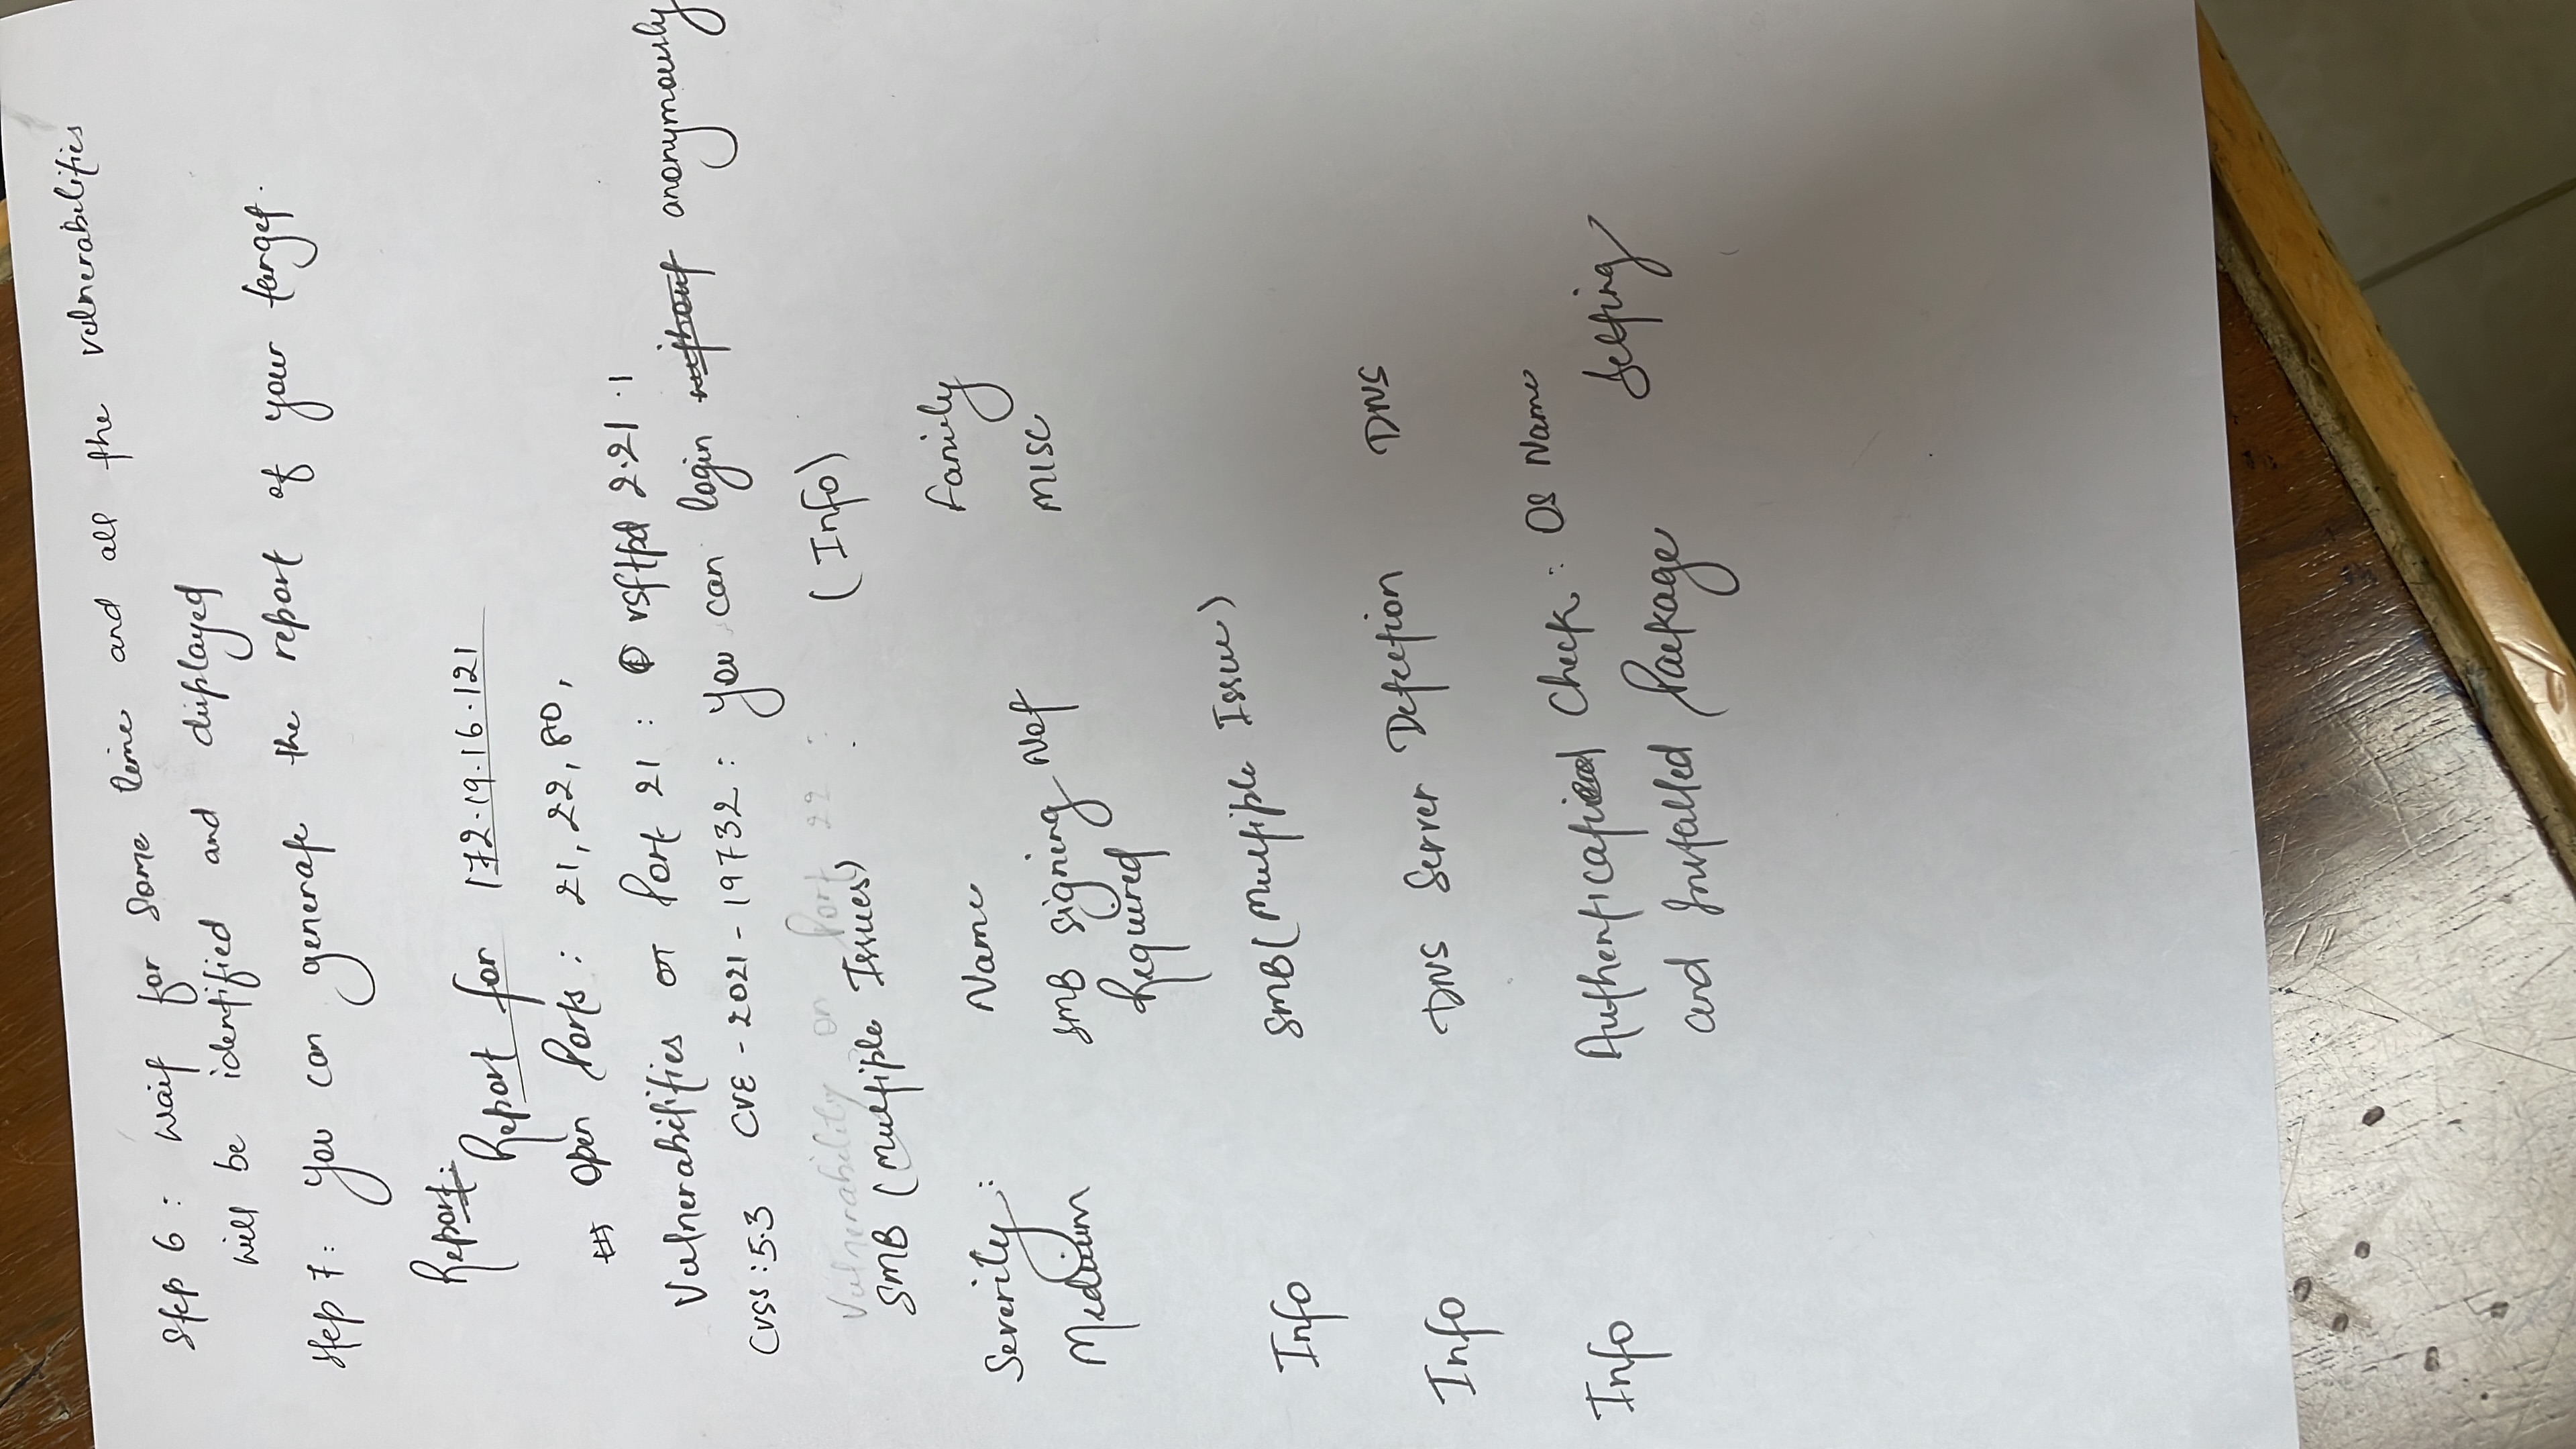 Step 6 : Wait for Some time and all the vulnerabilities
will be identified and displayed
Step 7 : You can generate the report of your target.
Report:
Report for 172.19.16.121
Open Ports : 21, 22, 80,
Vulnerabilities on Port 21 : vsftpd 2.21.1
CVSS : 5.3 CVE - 2021 - 19732 : You can login without anonymously
Vulnerability on Port 22 :
SMB (Multiple Issues) : (Info)
Severity : Name Family
Medium SMB signing Not MISC
Required
Info SMB (Multiple Issue)
Info DNS Server Detection DNS
Info Check : OS Name
and Installed Package Setting